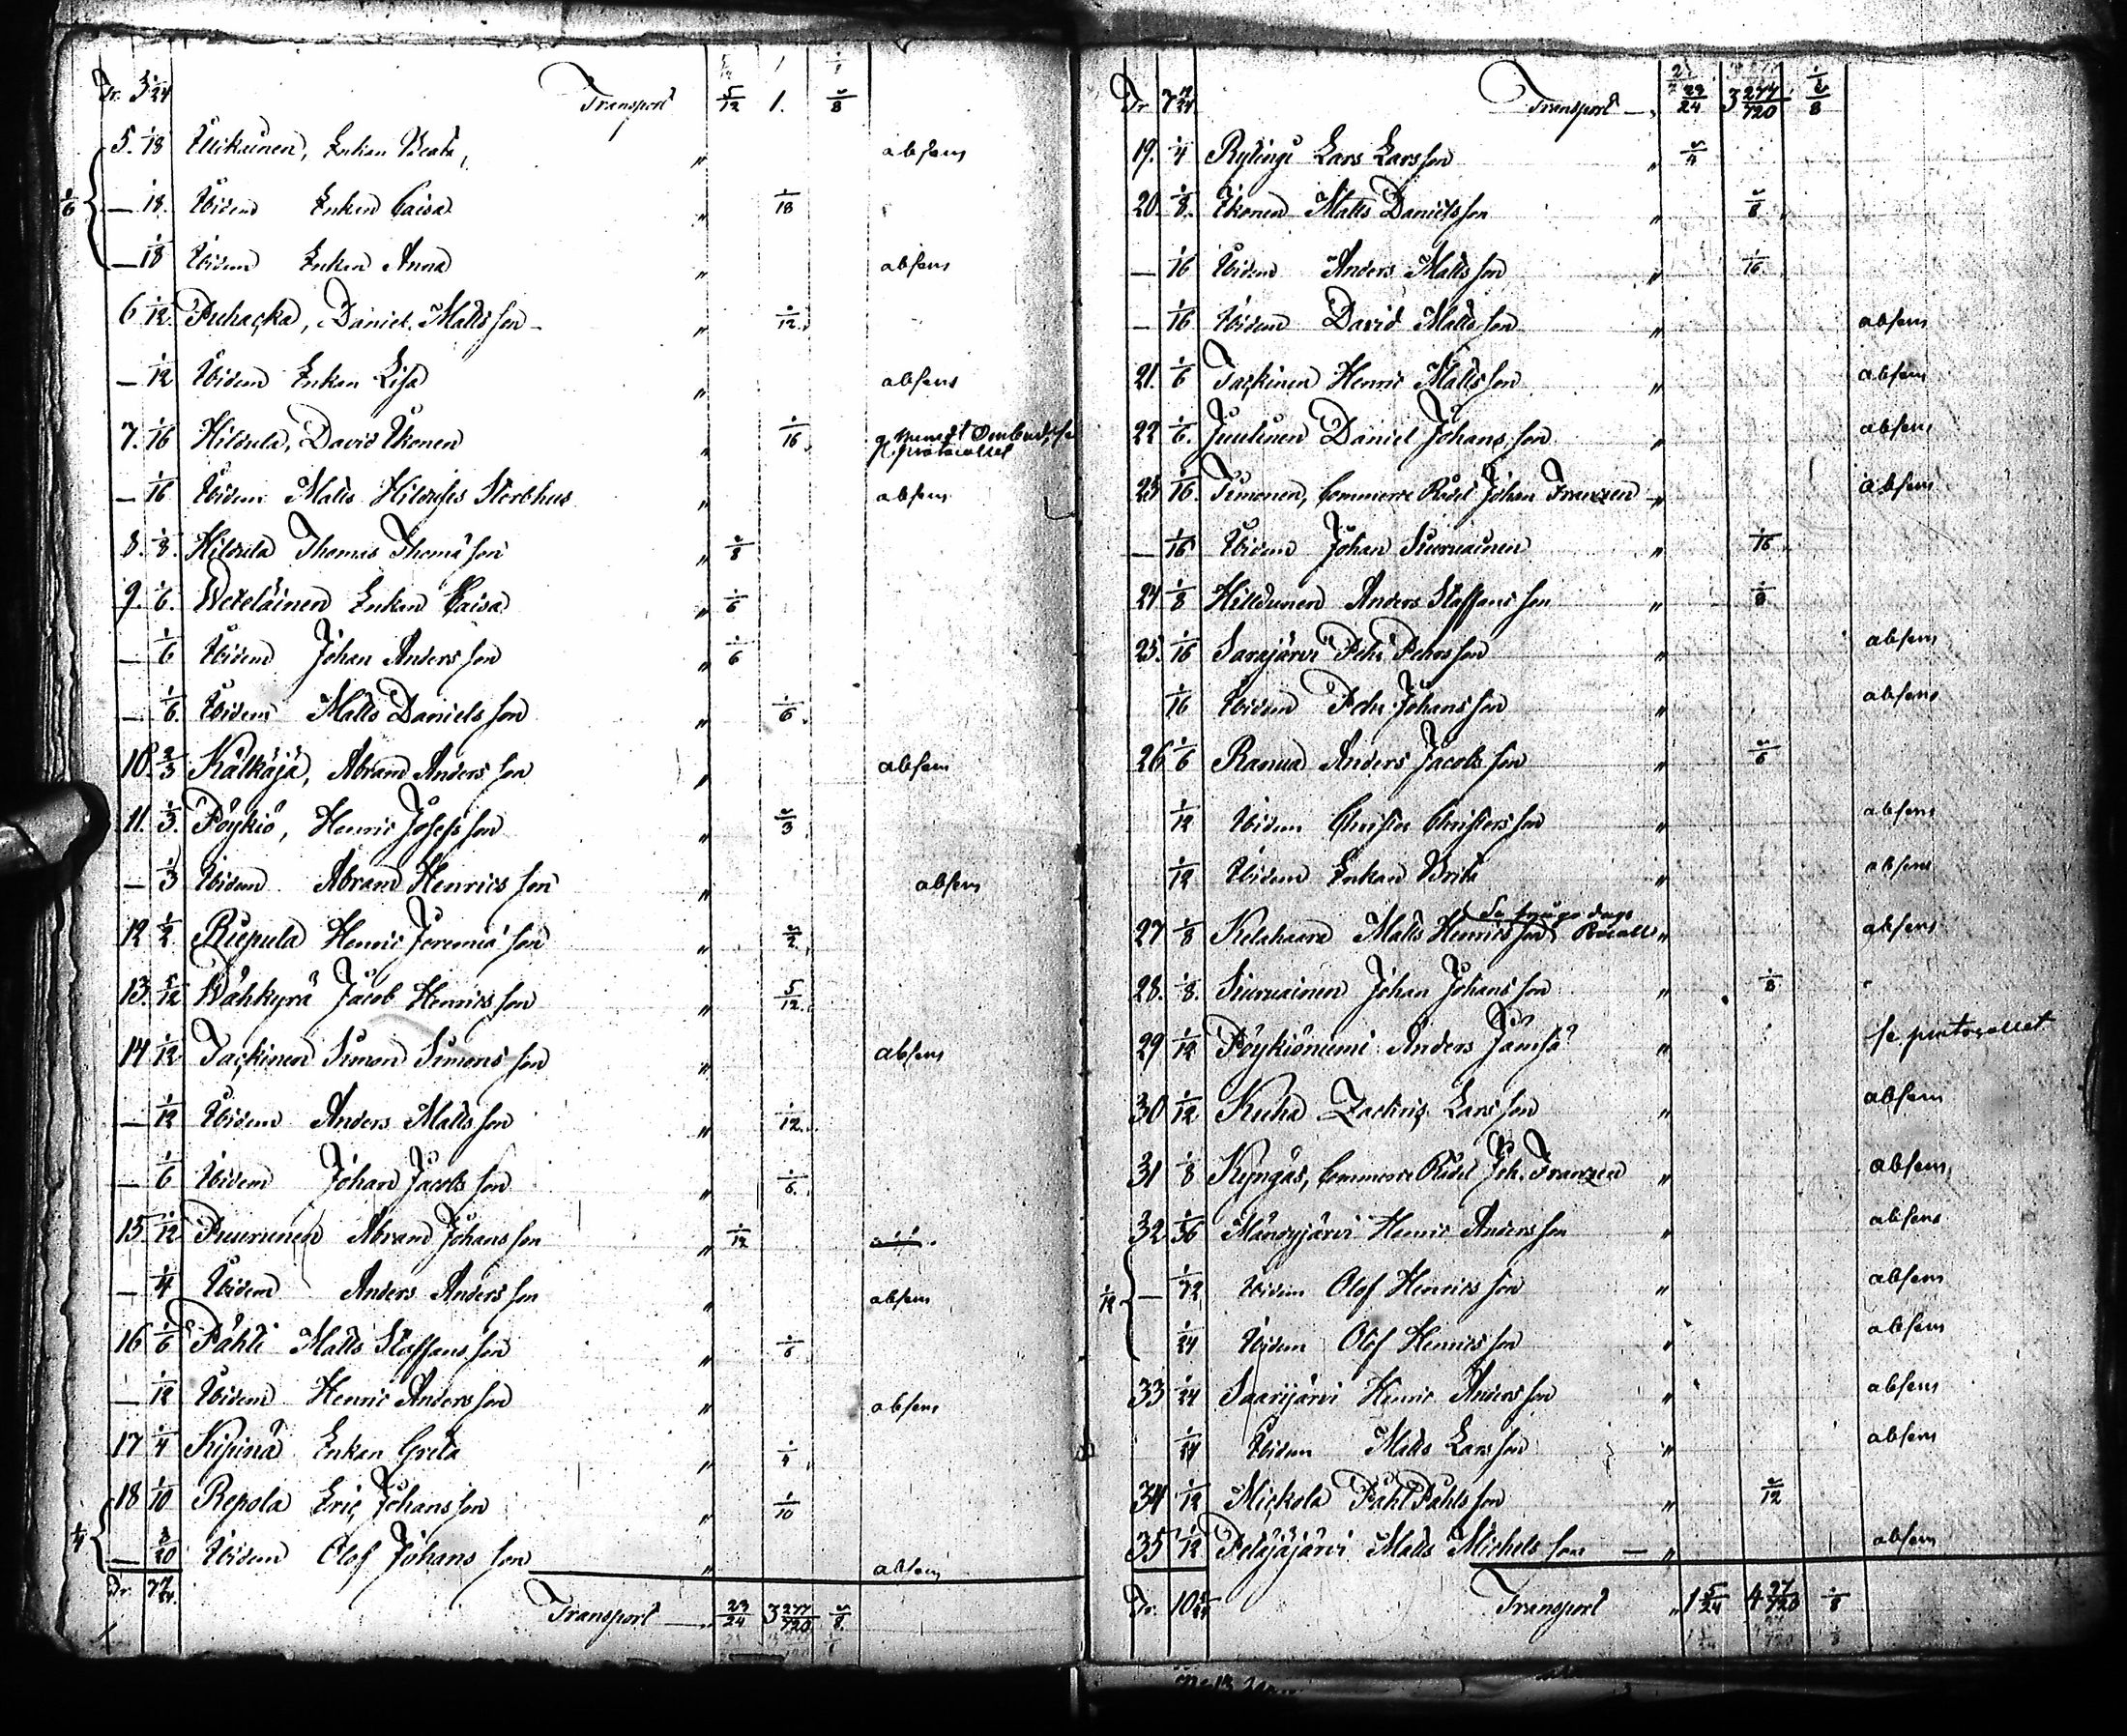 Tr. 3 1/24 Transport 5/12 1. 1/8
5. 1/18 Ukikainen, Enkan Beata, " absens
— 1/18. Ibidem Enkan Caisa " 1/18
1/6 — 1/18 Ibidem Enkan Anna " absens
6 1/12 Puhacka, Daniel Matts son " 1/12.
— 1/12 Ibidem Enkan Lisa " absens
7. 1/16 Hildula, David Ukonen " 1/16. protocollet
— 1/16 Ibidem Matts Sterbhus " absens
8. 1/8. Hildula Thomas Thomæ son " 1/8
9. 1/6. Weteläinen Enkan Caisa " 1/6
— 1/6 Ibidem Johan Anders son " 1/6
— 1/6. Ibidem Matts Daniels son " 1/6.
10. 2/3 Kälkäjä, Abram Anders son " absens
11. 1/3. Pöykiö, Henric Josefs son " 1/3
— 1/3 Ibidem Abram Henrics son " absens
12 1/2 Riepula Henric Jeremiæ son " 1/2
13. 5/12 Wähkyrä Jacob Henrics son " 5/12.
14 1/12 Tackinen Simon Simons son " absens
— 1/12 Ibidem Anders Matts son " 1/12.
— 1/6 Ibidem Johan Jacobs son " 1/6.
15. 1/12 Puurunen Abram Johans son " 1/12
— 1/4 Ibidem Anders Anders son " absens
16 1/6 Påhti Matts Staffans son " 1/6
— 1/12 Ibidem Henric Anders son " absens
17 1/4 Kipinä Enkan Greta " 1/4
18 1/10 Repola Eric Johans son " 1/10
1/4 — 3/20 Ibidem Olof Johans son " absens
Tr. 7 7/24. Transport 23/24 3 277/720 1/8.
Tr 7 7/24 Transport 23/24 3 277/720 1/8
19. 1/4 Rytingi Lars Lars son " 1/4
20. 1/8. Ikonen Matts Daniels son " 1/8
— 1/16 Ibidem Anders Matts son " 1/16.
— 1/16 Ibidem David Matts son " absens
21. 1/6 Tackinen Henric Matts son " absens
22 1/6. Juutinen Daniel Johans son " absens
23 1/16. Timonen, Commerce Rådet Johan Franzen " absens
— 1/16 Ibidem Johan Siuruainen " 1/16
24 1/8 Hilldunen Anders Staffans son " 1/8
25. 1/16 Sarajärvi Pehr Pehrs son " absens
1/16 Ibidem Pehr Johans son " absens
26 1/6 Ranua Anders Jacobs son " 1/6
1/12 Ibidem Christer Christers son " absens
1/12 Ibidem Enkan Brita " absens
27 1/8 Kelahaara Matts Henrics son " absens
28. 1/8. Siuruainen Johan Johans son " 1/8
29 1/12 Pöykiöniemi Anders Jämsä " se protocollet
30 1/12 Kuha Zachris Lars son " absens
31 1/8 Kyngäs, Commerce Rådet Joh. Franzen " absens
32 1/36 Mäntyjärvi Henric Anders son " absens
1/12 — 1/72 Ibidem Olof Henrics son " absens
1/24 Ibidem Olof Henrics son " absens
33 1/24 Saarijärvi Henric Anders son " absens
1/24 Ibidem Matts Lars son " absens
34 1/12 Mickola Påhl Påhls son " 1/12
35 1/12 Petäjäjärvi Matts Michels son — " absens
Tr. Transport " 1 5/24 4 97/720 1/8